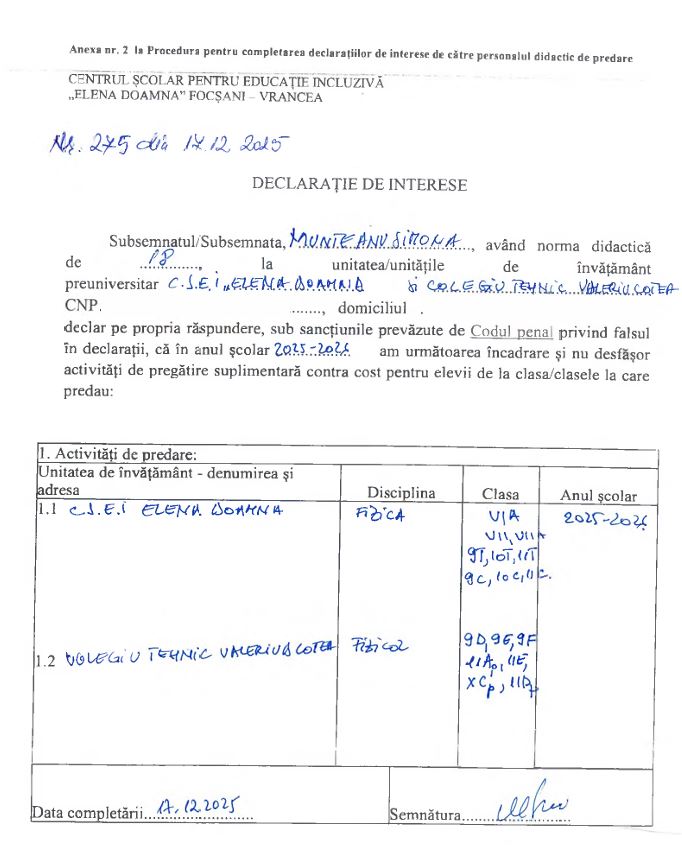 Anexa nr. 2 la Procedura pentru completarea declarațiilor de interese de către personalul didactic de predare
CENTRUL ȘCOLAR PENTRU EDUCAȚIE INCLUZIVĂ
„ELENA DOAMNA” FOCȘANI – VRANCEA
Nr. 275 din 17.12.2025
DECLARAȚIE DE INTERESE
Subsemnatul/Subsemnata, MUNTEANU SIMONA, având norma didactică
de 18, la unitatea/unitățile de învățământ
preuniversitar C.S.E.I „ELENA DOAMNA și COLEGIU TEHNIC VALERIU COTEA
CNP. ........, domiciliul .
declar pe propria răspundere, sub sancțiunile prevăzute de Codul penal privind falsul
în declarații, că în anul școlar 2025-2026 am următoarea încadrare și nu desfășor
activități de pregătire suplimentară contra cost pentru elevii de la clasa/clasele la care
predau:
1. Activități de predare:
Unitatea de învățământ - denumirea și
adresa Disciplina Clasa Anul școlar
1.1 C.S.E.I ELENA DOAMNA FIZICA VIA 2025-2026
VII, VII A
9T, 10T, 11T
9C, 10C, 11C.
1.2 COLEGIU TEHNIC VALERIU COTEA Fizica 9D, 9E, 9F
11Ap, 11E,
XCp, 11D
Data completării 17.12.2025 Semnătura